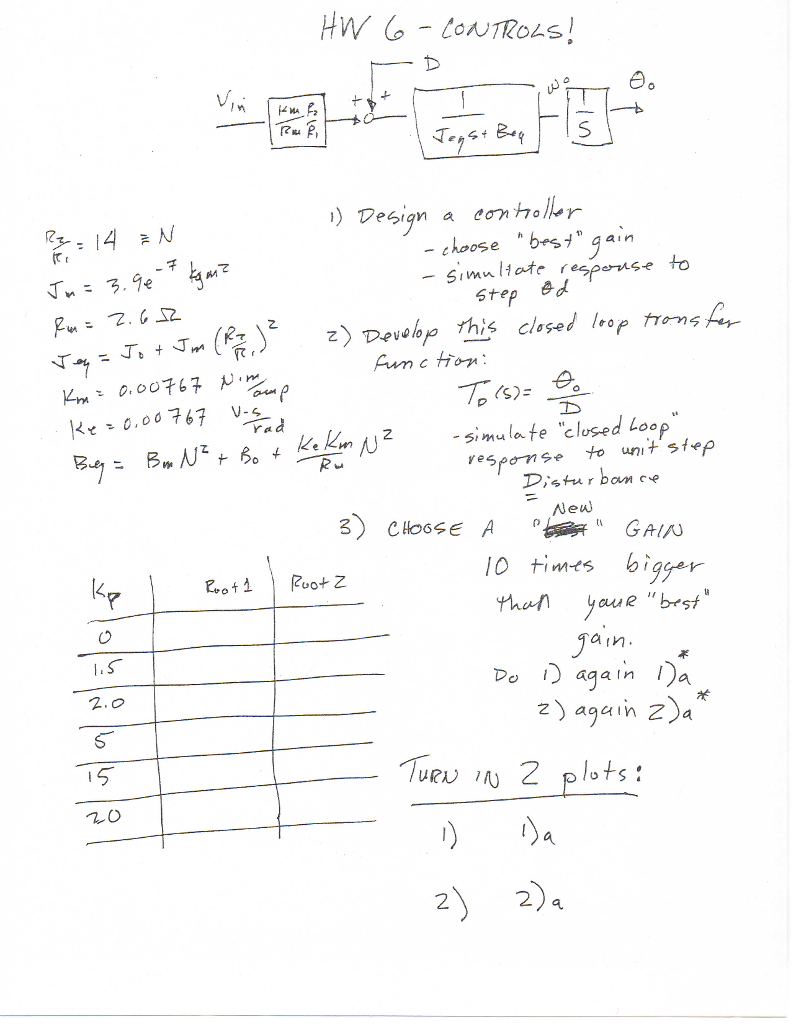 HW 6 - CONTROLS!
D
Vin
Km R2
Rm R1
+ +
1
Jeq s + Beq
ωo
1
S
Θo
R2/R1 = 14 ≡ N
Jm = 3.9e^-7 kgm²
Rm = 2.6 Ω
Jeq = Jo + Jm (R2/R1)²
Km = 0.00767 N·m/amp
Ke = 0.00767 V-s/rad
Beq = Bm N² + Bo + Ke Km/Rm N²
1) Design a controller
- choose "best" gain
- simultate response to
step θd
2) Develop this closed loop transfer
function:
TD(s) = Θo/D
- simulate "closed Loop"
response to unit step
Disturbance
3) CHOOSE A "New" GAIN
10 times bigger
than youR "best"
gain.
Do 1) again 1)a*
2) again 2)a*
Kp Root 1 Root 2
0
1.5
2.0
5
15
20
TURN IN 2 plots:
1) 1)a
2) 2)a